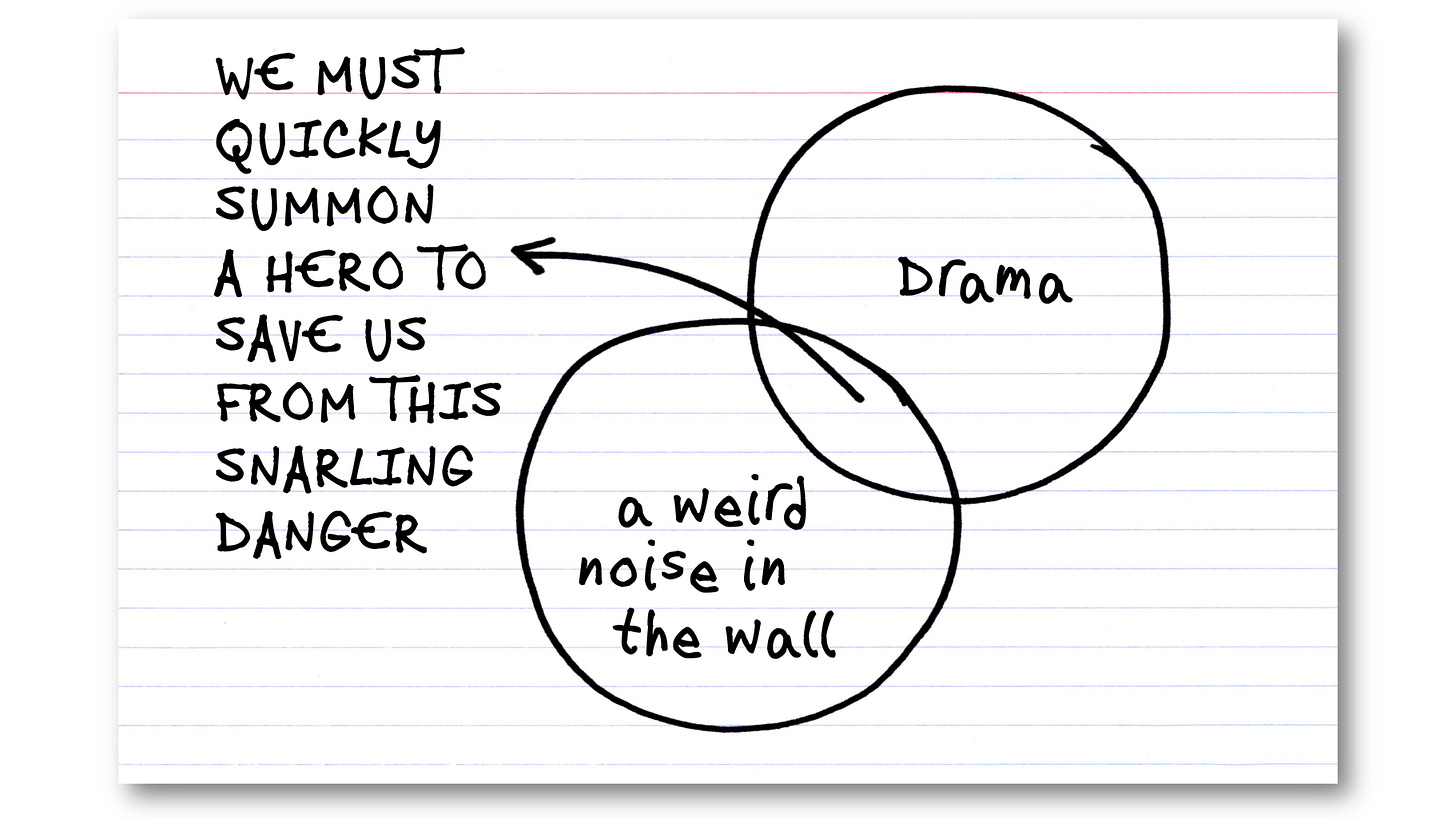 WE MUST
QUICKLY
SUMMON
A HERO TO
SAVE US
FROM THIS
SNARLING
DANGER
Drama
a weird
noise in
the wall